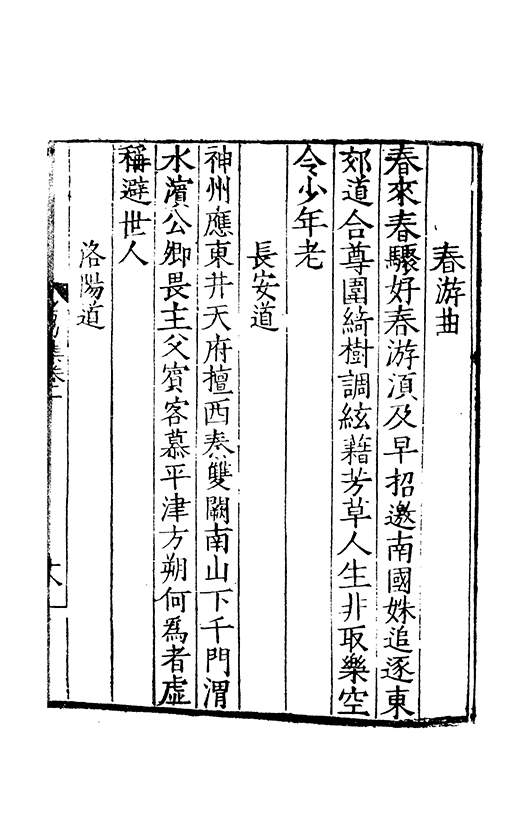 春游曲
春來春驟好春游湏及早招邀南國姝追逐東
郊道合尊圍綺樹調絃藉芳草人生非取樂空
令少年老
長安道
神州應東井天府擅西秦雙闕南山下千門渭
水濱公卿畏主父賓客慕平津方朔何爲者虛
稱避世人
洛陽道